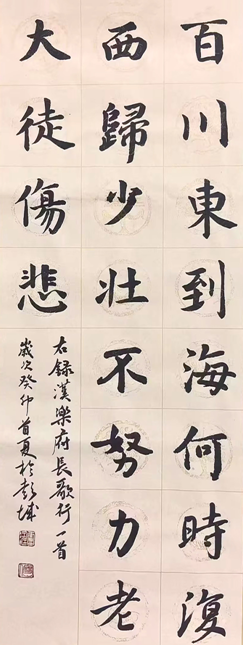 百川東到海何時復
西歸少壯不努力老
大徒傷悲
右錄漢樂府長歌行一首
歲次癸卯首夏於彭城